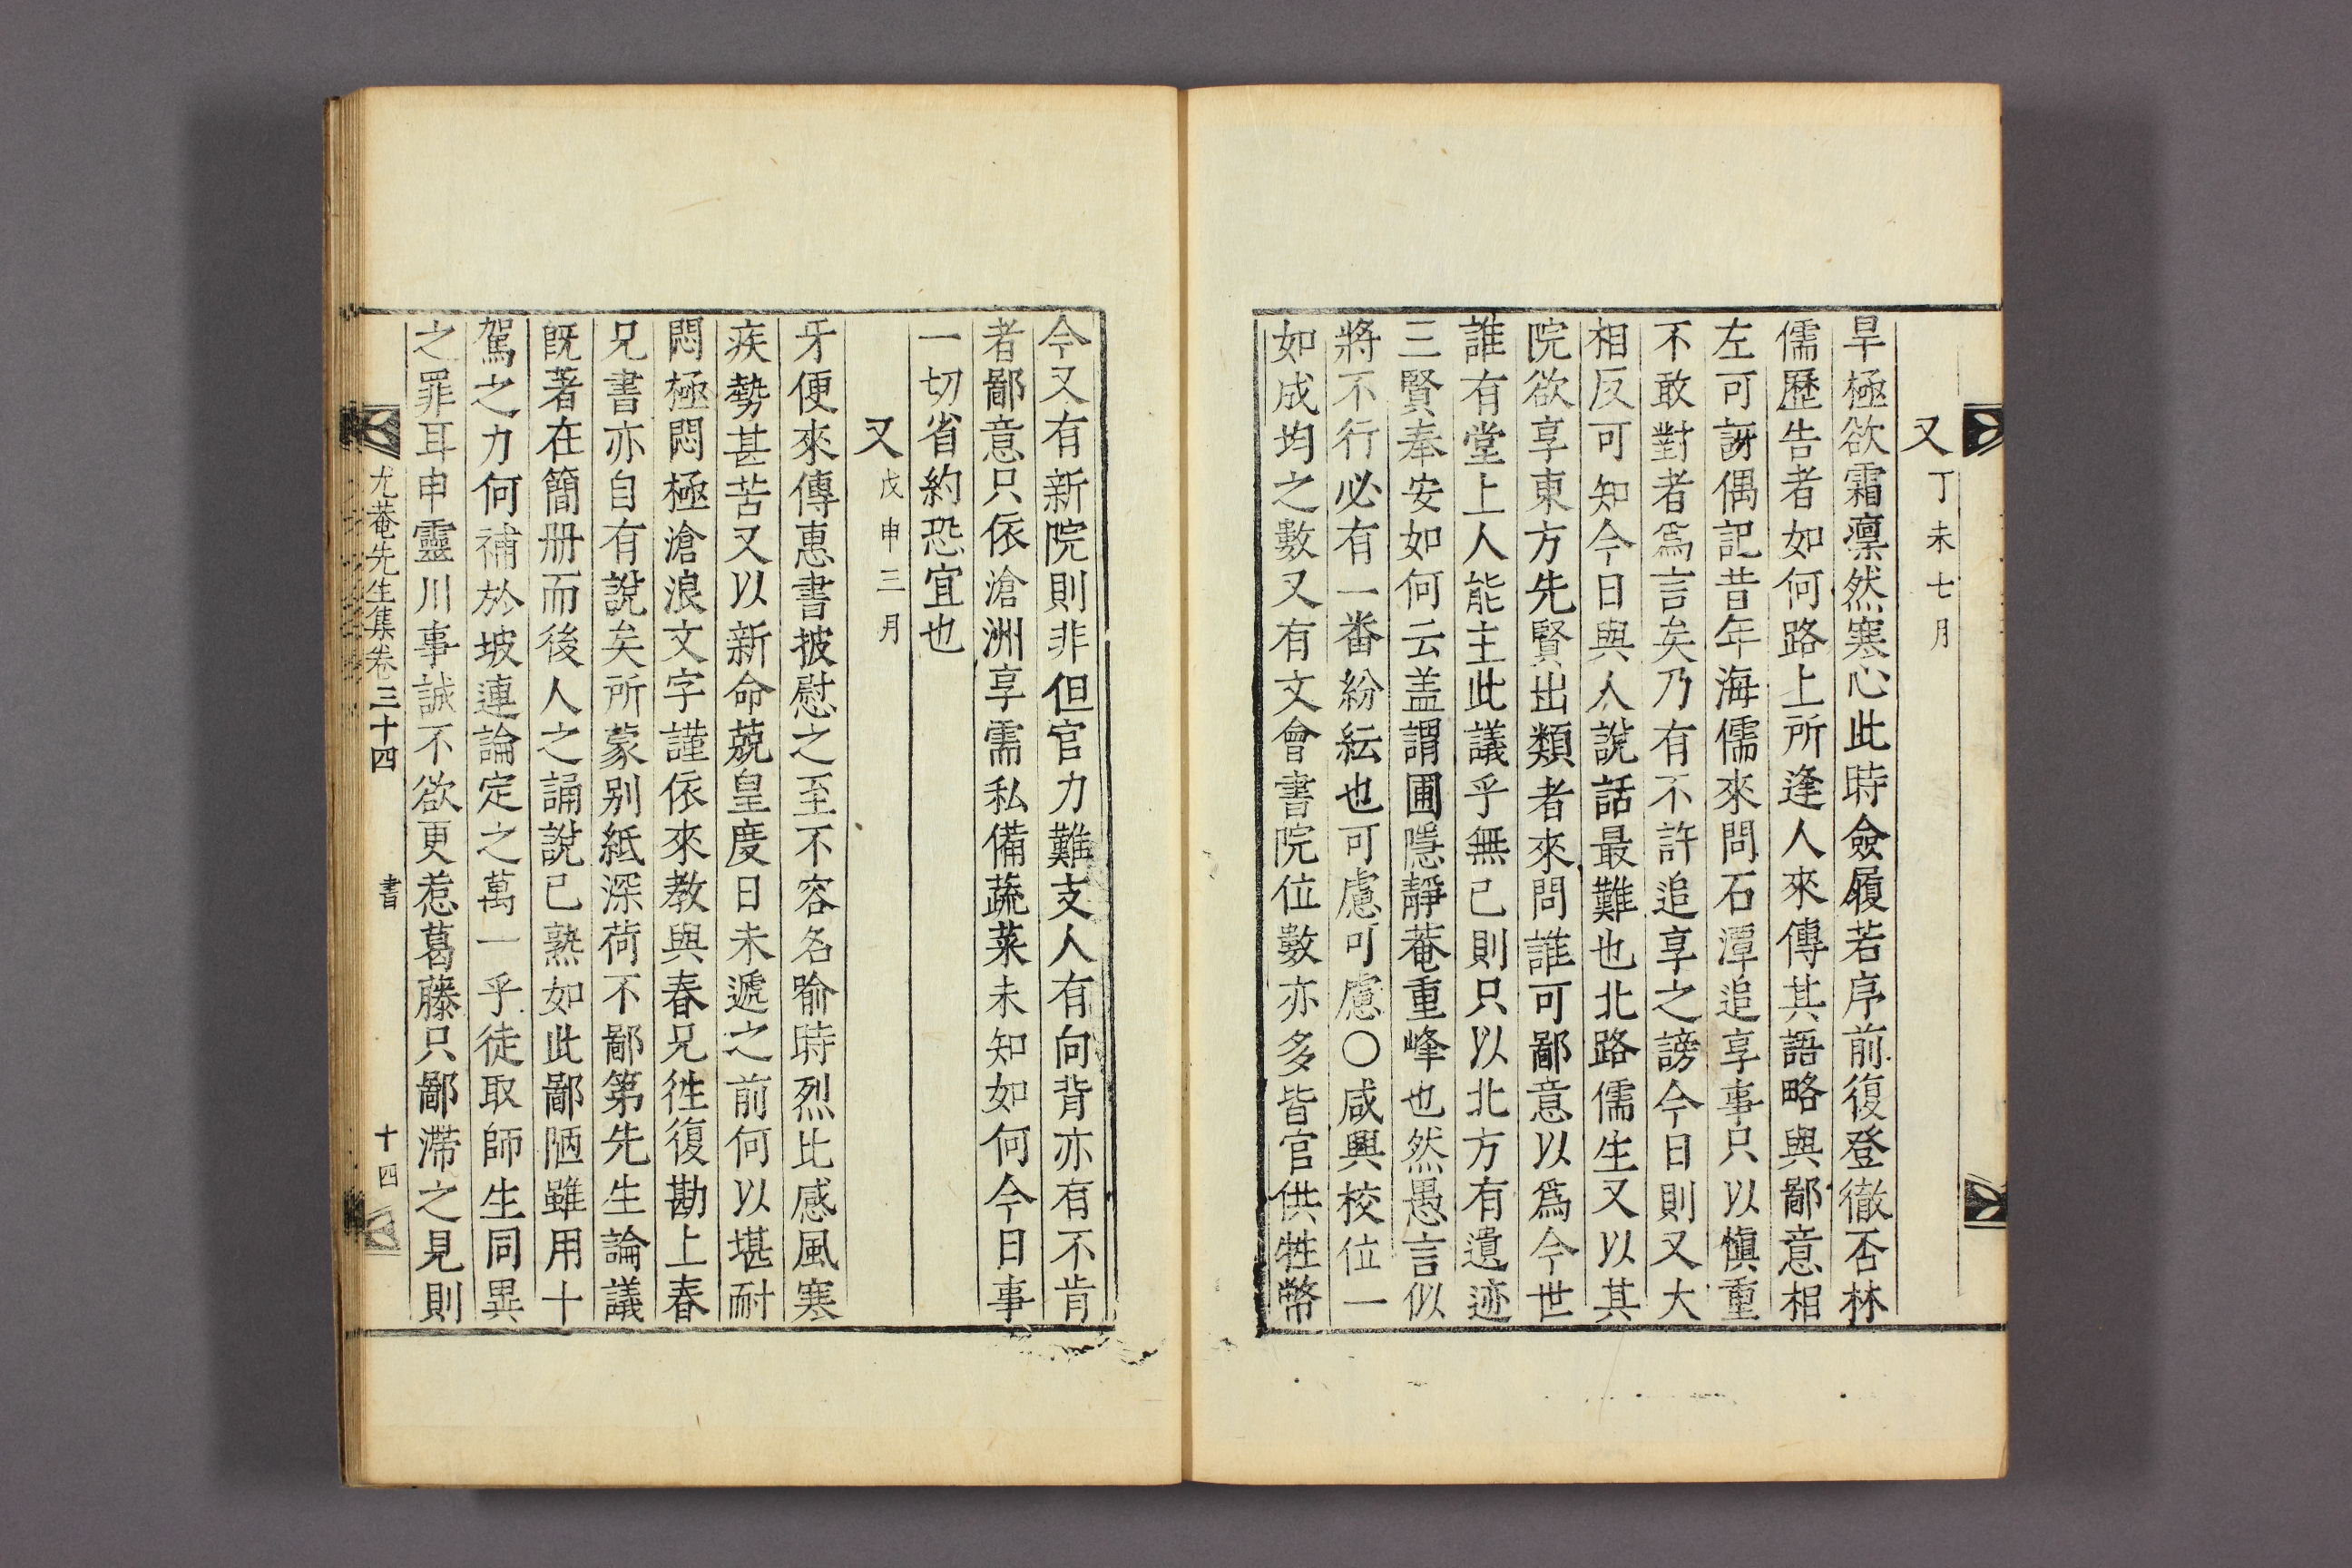 又 丁未七月
旱極欲霜凛然寒心此時僉履若序前復登徹否林
儒歷告者如何路上所逢人來傳其語略與鄙意相
左可訝偶記昔年海儒來問石潭追享事只以愼重
不敢對者爲言矣乃有不許追享之謗今日則又大
相反可知今日與人說話最難也北路儒生又以其
院欲享東方先賢出類者來問誰可鄙意以爲今世
誰有堂上人能主此議乎無已則只以北方有遺迹
三賢奉安如何云盖謂圃隱靜菴重峰也然愚言似
將不行必有一番紛紜也可慮可慮〇咸興校位一
如成均之數又有文會書院位數亦多皆官供牲幣
今又有新院則非但官力難支人有向背亦有不肯
者鄙意只依滄洲享需私備蔬菜未知如何今日事
一切省約恐宜也
又 戊申三月
牙便來傳惠書披慰之至不容名喩時烈比感風寒
疾勢甚苦又以新命兢皇度日未遞之前何以堪耐
悶極悶極滄浪文字謹依來敎與春兄徃復勘上春
兄書亦自有說矣所蒙別紙深荷不鄙第先生論議
旣著在簡册而後人之誦說已熟如此鄙陋雖用十
駕之力何補於坡連論定之萬一乎徒取師生同異
之罪耳申靈川事誠不欲更惹葛藤只鄙滯之見則
尤菴先生集卷三十四 書 十四